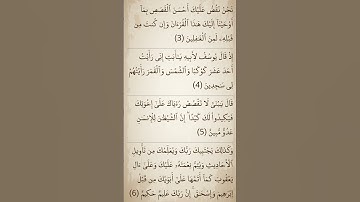 نَحْنُ نَقُصُّ عَلَيْكَ أَحْسَنَ ٱلْقَصَصِ بِمَآ
أَوْحَيْنَآ إِلَيْكَ هَٰذَا ٱلْقُرْءَانَ وَإِن كُنتَ مِن
قَبْلِهِۦ لَمِنَ ٱلْغَٰفِلِينَ (3)
إِذْ قَالَ يُوسُفُ لِأَبِيهِ يَٰٓأَبَتِ إِنِّى رَأَيْتُ
أَحَدَ عَشَرَ كَوْكَبًا وَٱلشَّمْسَ وَٱلْقَمَرَ رَأَيْتُهُمْ
لِى سَٰجِدِينَ (4)
قَالَ يَٰبُنَىَّ لَا تَقْصُصْ رُءْيَاكَ عَلَىٰٓ إِخْوَتِكَ
فَيَكِيدُوا۟ لَكَ كَيْدًا ۖ إِنَّ ٱلشَّيْطَٰنَ لِلْإِنسَٰنِ
عَدُوٌّ مُّبِينٌ (5)
وَكَذَٰلِكَ يَجْتَبِيكَ رَبُّكَ وَيُعَلِّمُكَ مِن تَأْوِيلِ
ٱلْأَحَادِيثِ وَيُتِمُّ نِعْمَتَهُۥ عَلَيْكَ وَعَلَىٰٓ ءَالِ
يَعْقُوبَ كَمَآ أَتَمَّهَا عَلَىٰٓ أَبَوَيْكَ مِن قَبْلُ
إِبْرَٰهِيمَ وَإِسْحَٰقَ ۚ إِنَّ رَبَّكَ عَلِيمٌ حَكِيمٌ (6)